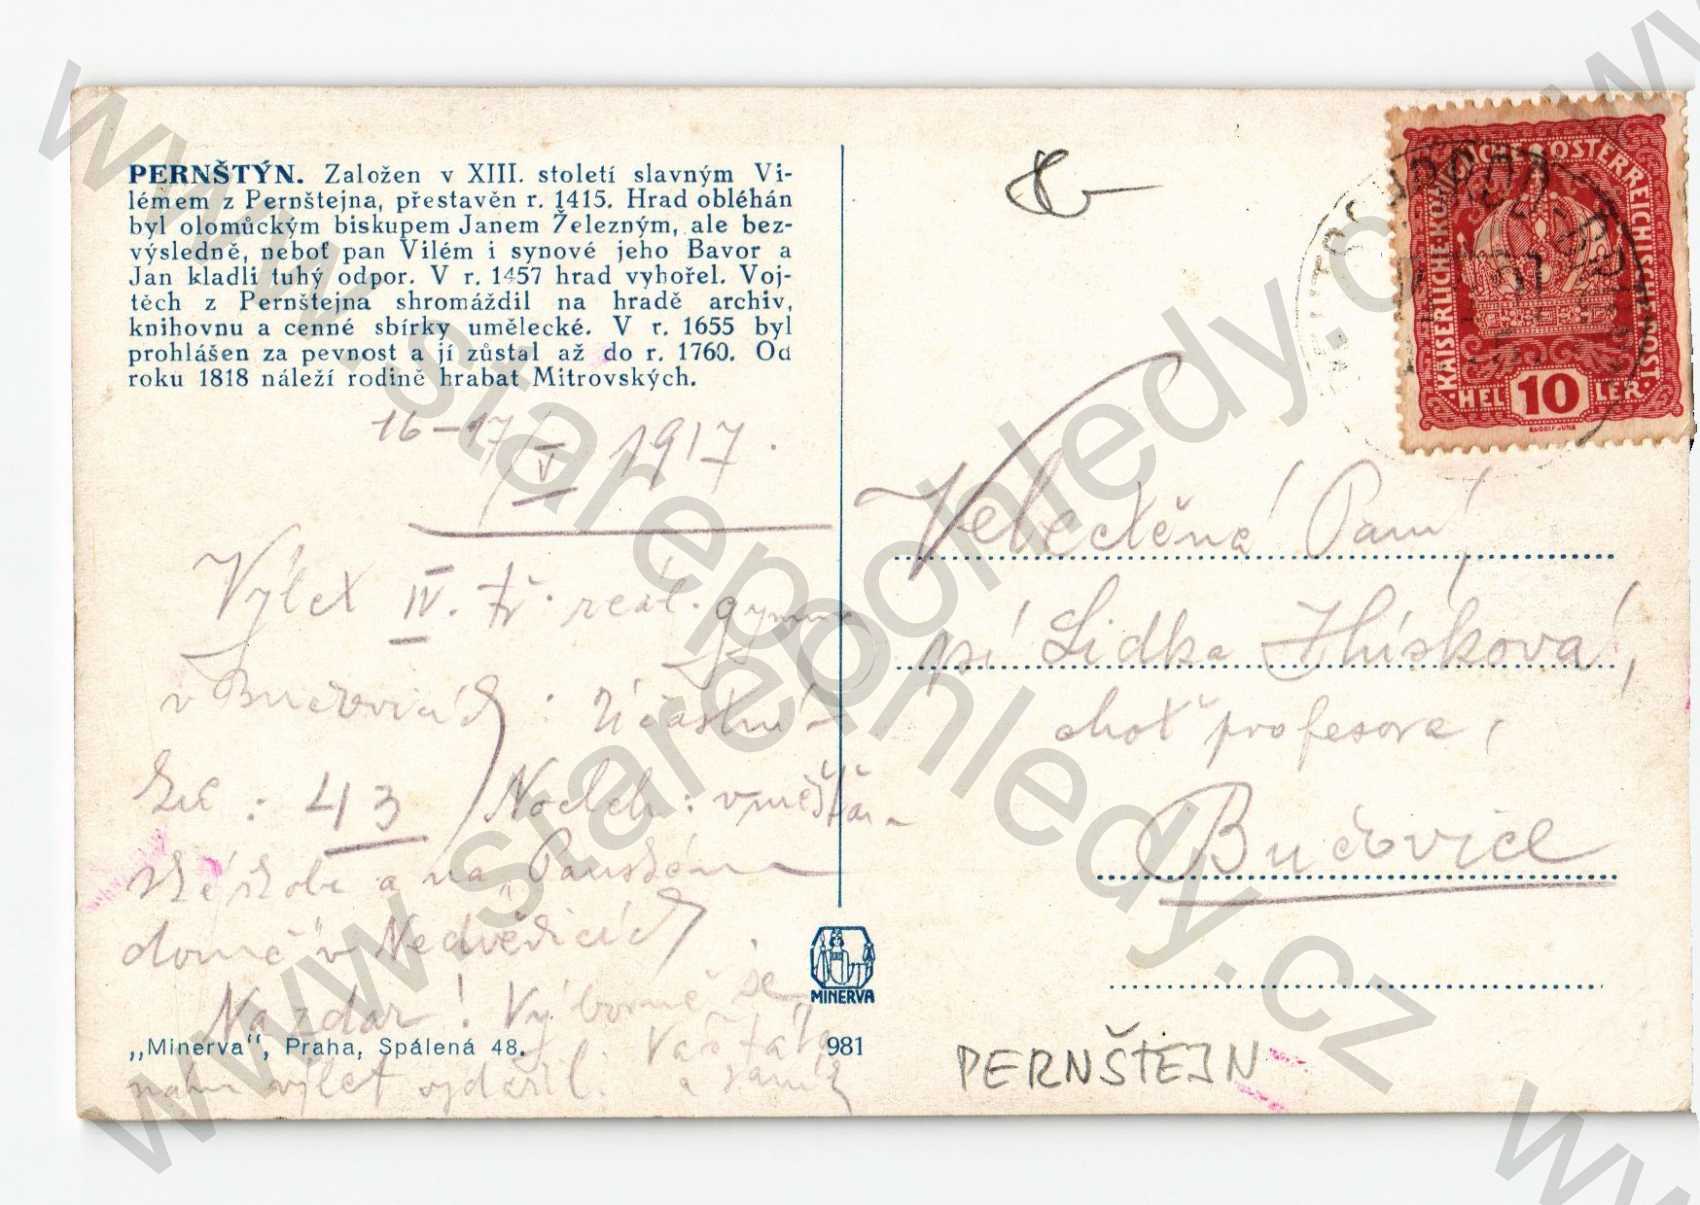 PERNŠTÝN. Založen v XIII. století slavným Vi-
lémem z Pernštejna, přestavěn r. 1415. Hrad obléhán
byl olomůckým biskupem Janem Železným, ale bez-
výsledně, neboť pan Vilém i synové jeho Bavor a
Jan kladli tuhý odpor. V r. 1457 hrad vyhořel. Voj-
těch z Pernštejna shromáždil na hradě archiv,
knihovnu a cenné sbírky umělecké. V r. 1655 byl
prohlášen za pevnost a jí zůstal až do r. 1760. Od
roku 1818 náleží rodině hrabat Mitrovských.
16-17/V 1917.
Výlet IV. tř. reál. gymn.
v Budovicích: Účastní-
ků: 43 Nocleh: v měšťan-
ské škole a na „Panském
domě" v Nedvědicích.
Nazdar! Výborně se
nám výlet vydařil. Váš táta
„Minerva", Praha, Spálená 48.
MINERVA
981
KAISERLICHE KÖNIGLICHE ÖSTERREICHISCHE POST
HEL 10 LER
Velectěná Paní,
pí Lidka Hlúsková,
choť profesora,
Budovice
PERNŠTEJN
www.starepohledy.cz
www.starepohledy.cz